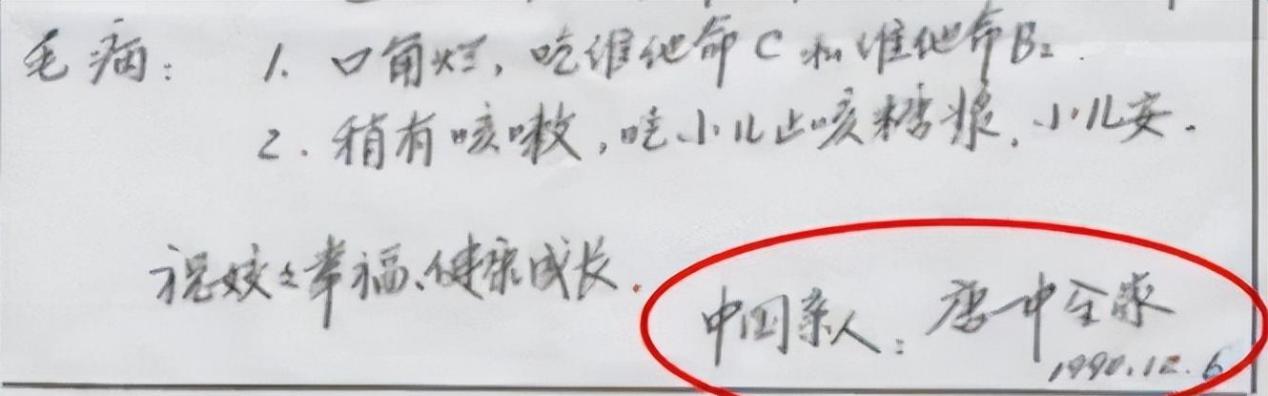 毛病：1. 口角烂，吃维他命C和维他命B₂.
2. 稍有咳嗽，吃小儿止咳糖浆，小儿安.
祝姣々幸福、健康成长.
中国亲人：唐一中全家
1990.12.6